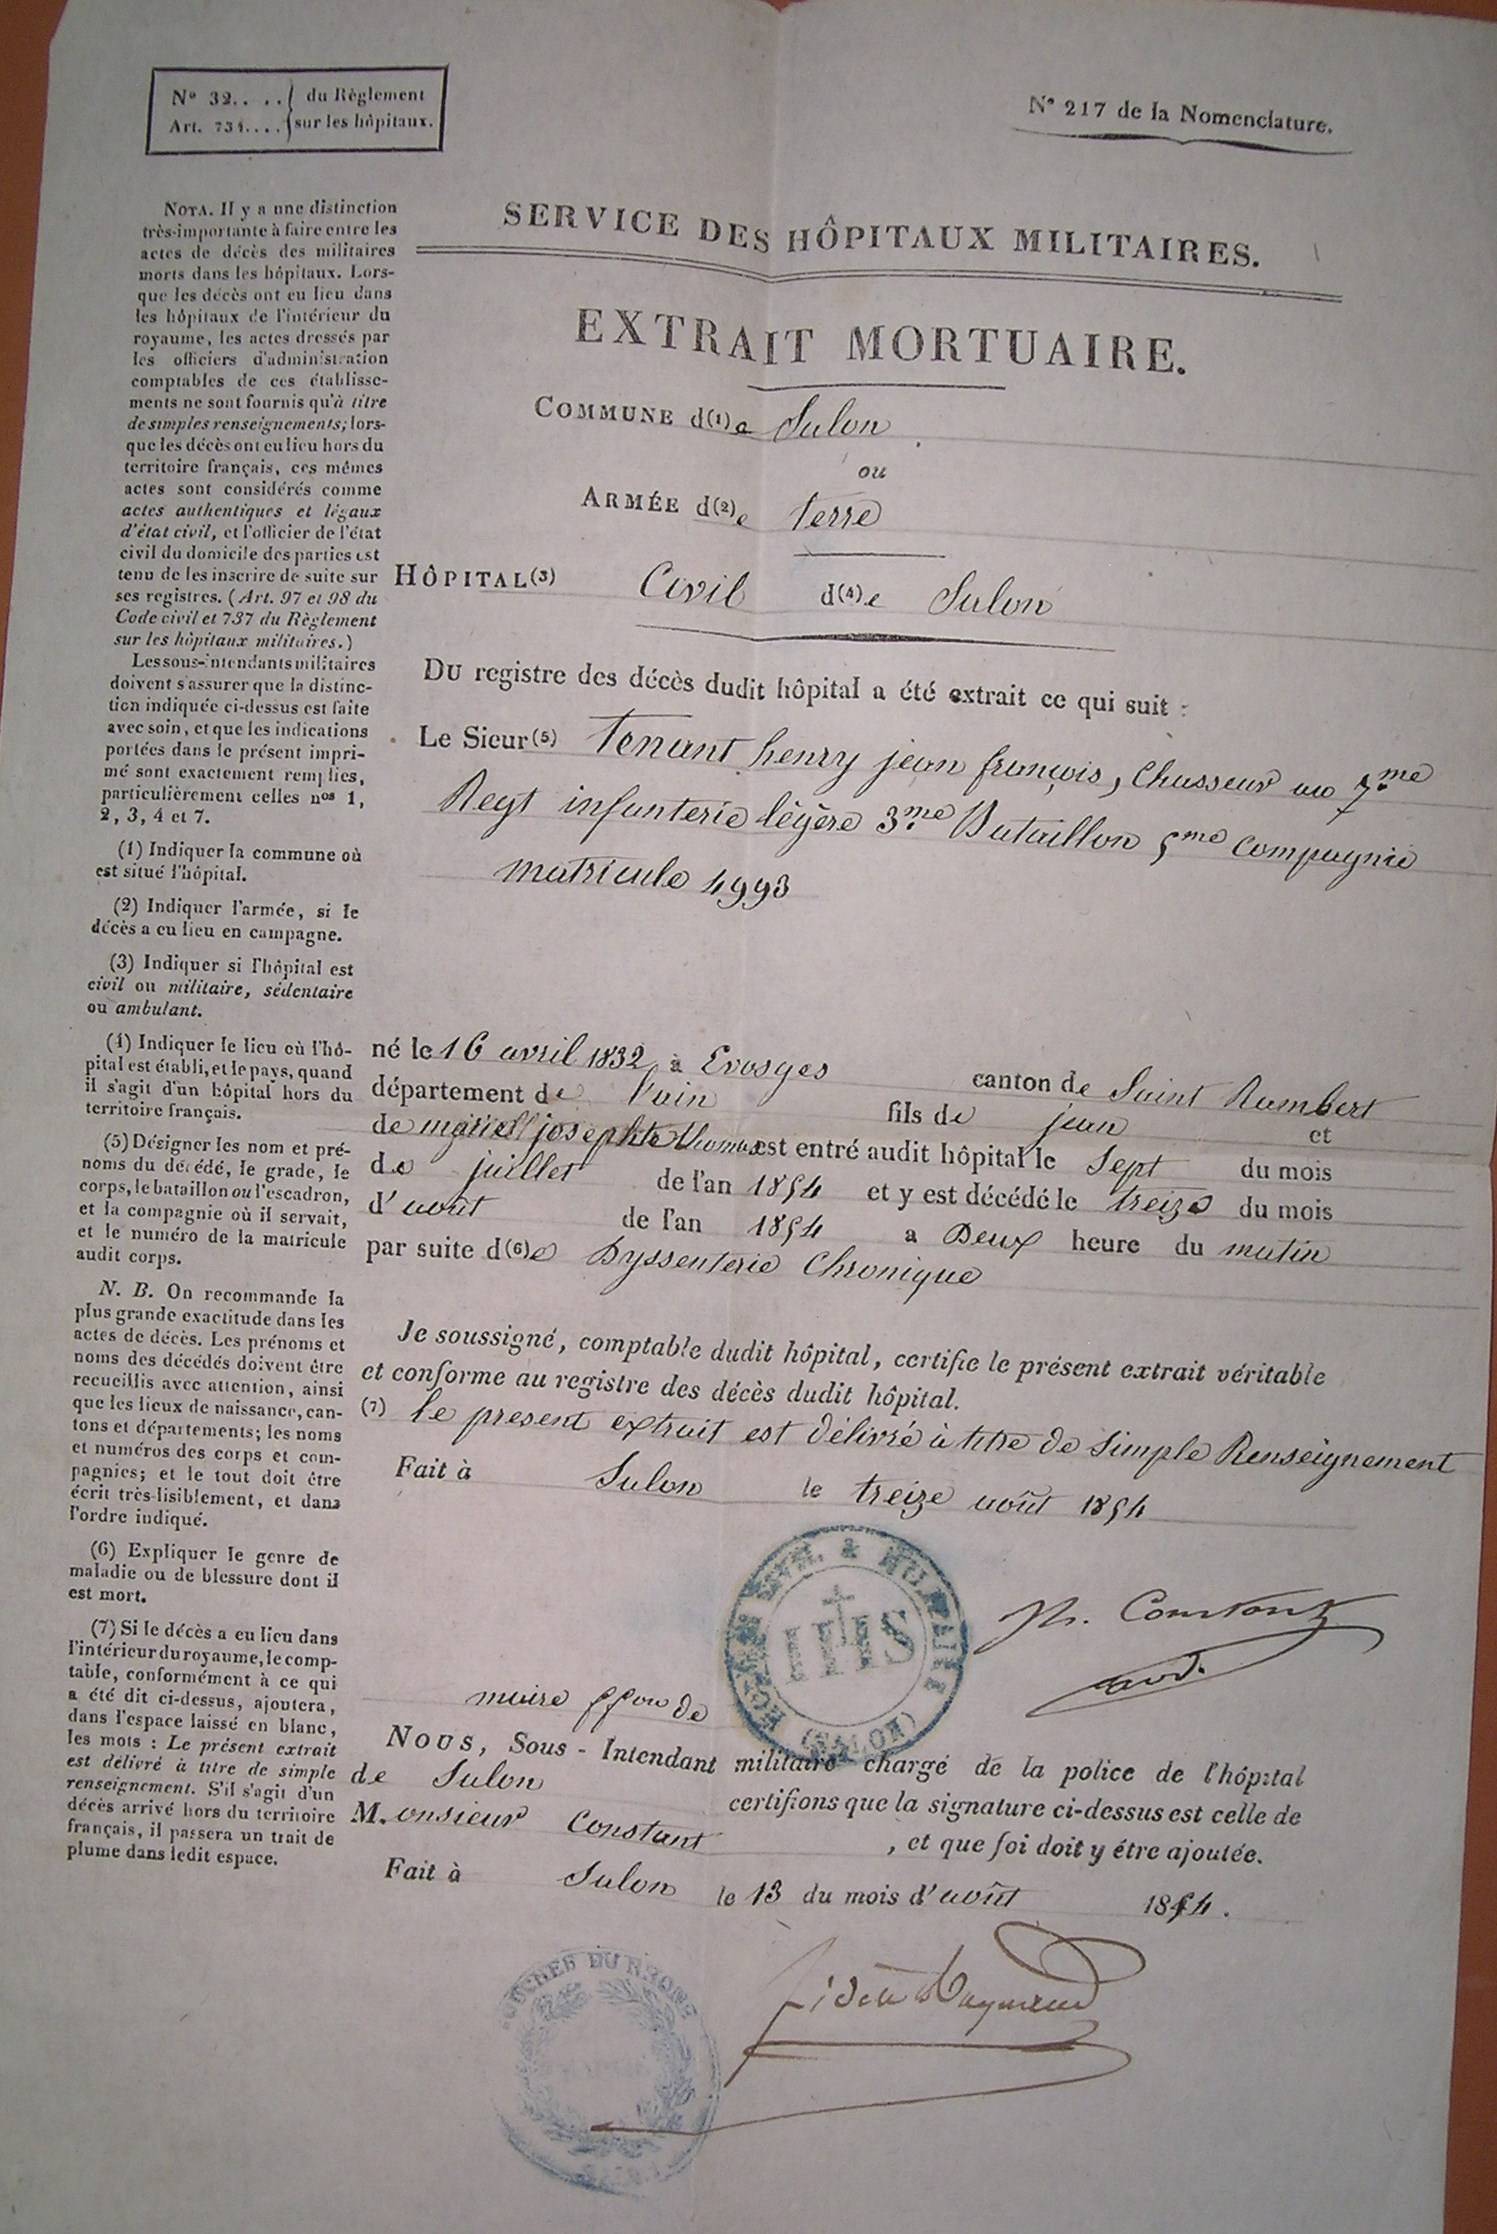 N° 32.. .. du Règlement
Art. 731.... sur les hôpitaux.
N° 217 de la Nomenclature.
SERVICE DES HÔPITAUX MILITAIRES.
EXTRAIT MORTUAIRE.
COMMUNE d(1)e Salon
ou
ARMÉE d(2)e terre
HÔPITAL(3) Civil d(4)e Salon
DU registre des décès dudit hôpital a été extrait ce qui suit :
Le Sieur(5) Tenant henry jean françois, Chasseur au 7.me
Regt infanterie légère 3.me Bataillon 5me compagnie
matricule 4993
né le 16 avril 1832 à Evosges canton de Saint Rambert
département de l'ain fils de jean et
de josephte thomas est entré audit hôpital le Sept du mois
de juillet de l'an 1854 et y est décédé le treize du mois
d'août de l'an 1854 a Deux heure du matin
par suite d(6)e Dyssenterie Chronique
Je soussigné, comptable dudit hôpital, certifie le présent extrait véritable
et conforme au registre des décès dudit hôpital.
(7) le present extrait est délivré à titre de simple Renseignement
Fait à Salon le treize août 1854
IHS
(SALON)
Constant
maire ffon de
NOUS, Sous-Intendant militaire chargé de la police de l'hôpital
de Salon certifions que la signature ci-dessus est celle de
M.onsieur Constant , et que foi doit y être ajoutée.
Fait à Salon le 13 du mois d'août 1854.
BOUCHES DU RHONE
NOTA. Il y a une distinction
très-importante à faire entre les
actes de décès des militaires
morts dans les hôpitaux. Lors-
que les décès ont eu lieu dans
les hôpitaux de l'intérieur du
royaume, les actes dressés par
les officiers d'administration
comptables de ces établisse-
ments ne sont fournis qu'à titre
de simples renseignements; lors-
que les décès ont eu lieu hors du
territoire français, ces mêmes
actes sont considérés comme
actes authentiques et légaux
d'état civil, et l'officier de l'état
civil du domicile des parties est
tenu de les inscrire de suite sur
ses registres. (Art. 97 et 98 du
Code civil et 737 du Règlement
sur les hôpitaux militaires.)
Les sous-intendants militaires
doivent s'assurer que la distinc-
tion indiquée ci-dessus est faite
avec soin, et que les indications
portées dans le présent impri-
mé sont exactement remplies,
particulièrement celles nos 1,
2, 3, 4 et 7.
(1) Indiquer la commune où
est situé l'hôpital.
(2) Indiquer l'armée, si le
décès a eu lieu en campagne.
(3) Indiquer si l'hôpital est
civil ou militaire, sédentaire
ou ambulant.
(4) Indiquer le lieu où l'hô-
pital est établi, et le pays, quand
il s'agit d'un hôpital hors du
territoire français.
(5) Désigner les nom et pré-
noms du décédé, le grade, le
corps, le bataillon ou l'escadron,
et la compagnie où il servait,
et le numéro de la matricule
audit corps.
N. B. On recommande la
plus grande exactitude dans les
actes de décès. Les prénoms et
noms des décédés doivent être
recueillis avec attention, ainsi
que les lieux de naissance, can-
tons et départements; les noms
et numéros des corps et com-
pagnies; et le tout doit être
écrit très-lisiblement, et dans
l'ordre indiqué.
(6) Expliquer le genre de
maladie ou de blessure dont il
est mort.
(7) Si le décès a eu lieu dans
l'intérieur du royaume, le comp-
table, conformément à ce qui
a été dit ci-dessus, ajoutera,
dans l'espace laissé en blanc,
les mots : Le présent extrait
est délivré à titre de simple
renseignement. S'il s'agit d'un
décès arrivé hors du territoire
français, il passera un trait de
plume dans ledit espace.